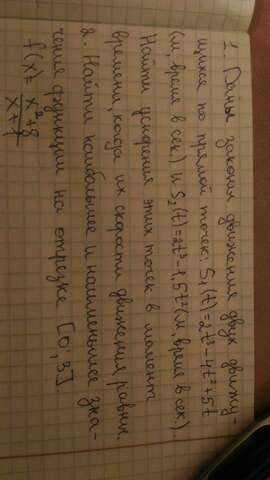 1. Даны законы движения двух движу-
щихся по прямой точек: S₁(t)=2t³-4t²+5t
(м, время в сек.) и S₂(t)=2t³-1,5t² (м, время в сек.).
Найти ускорения этих точек в момент
времени, когда их скорости движения равны.
2. Найти наибольшее и наименьшее зна-
чения функции на отрезке [0;3].
f(x)= x²+8 / x+1